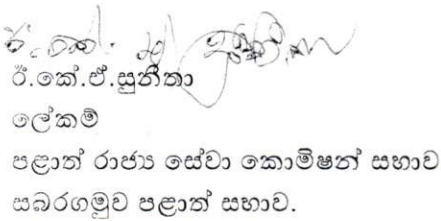 ඊ.කේ.ඒ.සුනීතා
ලේකම්
පළාත් රාජ්‍ය සේවා කොමිෂන් සභාව
සබරගමුව පළාත් සභාව.